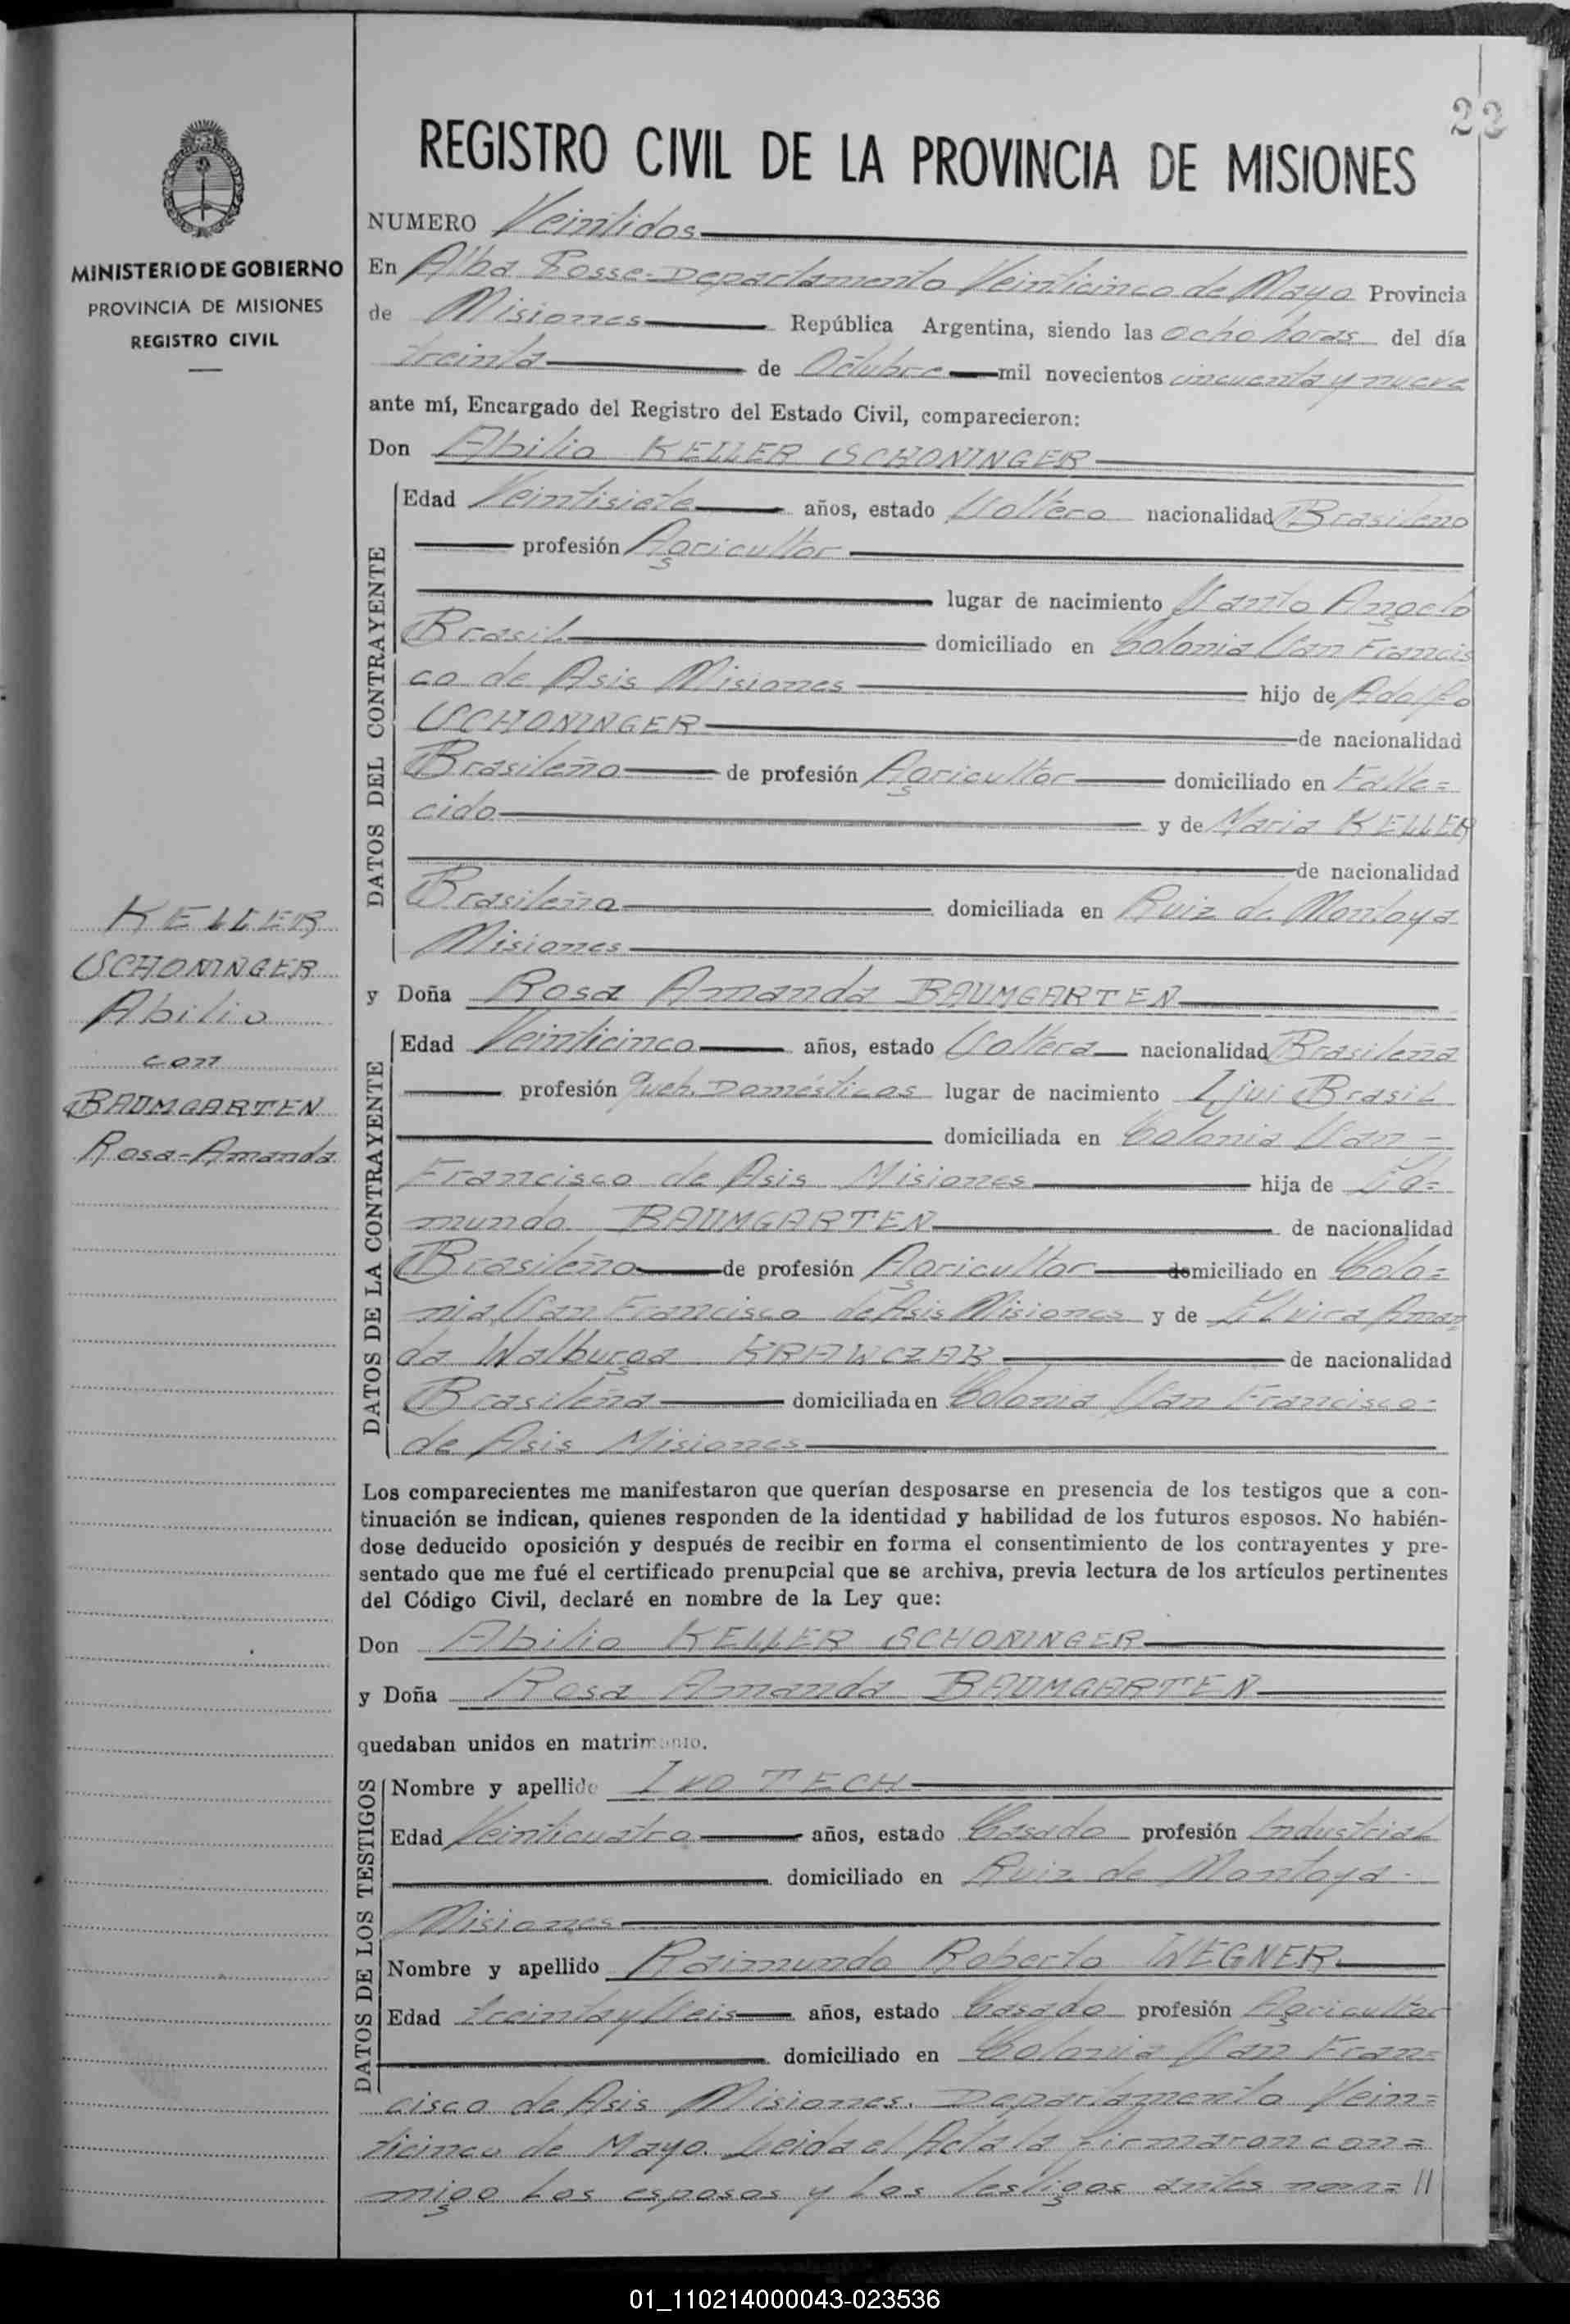 22
REGISTRO CIVIL DE LA PROVINCIA DE MISIONES
MINISTERIO DE GOBIERNO
PROVINCIA DE MISIONES
REGISTRO CIVIL
KELLER
SCHONINGER
Abilio
con
BAUMGARTEN
Rosa-Amanda
NUMERO Veintidos
En Alba Posse-Departamento Veinticinco de Mayo Provincia
de Misiones República Argentina, siendo las ocho horas del día
treinta de Octubre mil novecientos cincuenta y nueve
ante mí, Encargado del Registro del Estado Civil, comparecieron:
Don Abilio KELLER SCHONINGER
DATOS DEL CONTRAYENTE
Edad Veintisiete años, estado Soltero nacionalidad Brasileno
profesión Agricultor
lugar de nacimiento Santo Angelo
Brasil domiciliado en Colonia San Francis
co de Asis Misiones hijo de Adolfo
SCHONINGER de nacionalidad
Brasileño de profesión Agricultor domiciliado en Falle=
cido y de Maria KELLER
de nacionalidad
Brasileña domiciliada en Ruiz de Montoya
Misiones
y Doña Rosa Amanda BAUMGARTEN
DATOS DE LA CONTRAYENTE
Edad Veinticinco años, estado Soltera nacionalidad Brasileña
profesión Queh. Domésticos lugar de nacimiento Ijui Brasil
domiciliada en Colonia San -
Francisco de Asis Misiones hija de
mundo BAUMGARTEN de nacionalidad
Brasileño de profesión Agricultor domiciliado en Colo=
nia San Francisco de Asis Misiones y de Elvira Aman
da Walburga KRAWCZAK de nacionalidad
Brasileña domiciliada en Colonia San Francisco-
de Asis Misiones
Los comparecientes me manifestaron que querían desposarse en presencia de los testigos que a con-
tinuación se indican, quienes responden de la identidad y habilidad de los futuros esposos. No habién-
dose deducido oposición y después de recibir en forma el consentimiento de los contrayentes y pre-
sentado que me fué el certificado prenupcial que se archiva, previa lectura de los artículos pertinentes
del Código Civil, declaré en nombre de la Ley que:
Don Abilio KELLER SCHONINGER
y Doña Rosa Amanda BAUMGARTEN
quedaban unidos en matrimonio.
DATOS DE LOS TESTIGOS
Nombre y apellido Ivo TECH
Edad Veinticuatro años, estado Casado profesión Industrial
domiciliado en Ruiz de Montoya-
Misiones
Nombre y apellido Raimundo Roberto WEGNER
Edad treinta y Seis años, estado Casado profesión Agricultor
domiciliado en Colonia San Fran=
cisco de Asis Misiones. Departamento Vein=
ticinco de Mayo. Leida el Acta la firmaron con=
migo los esposos y los testigos antes nom= ||
01_110214000043-023536